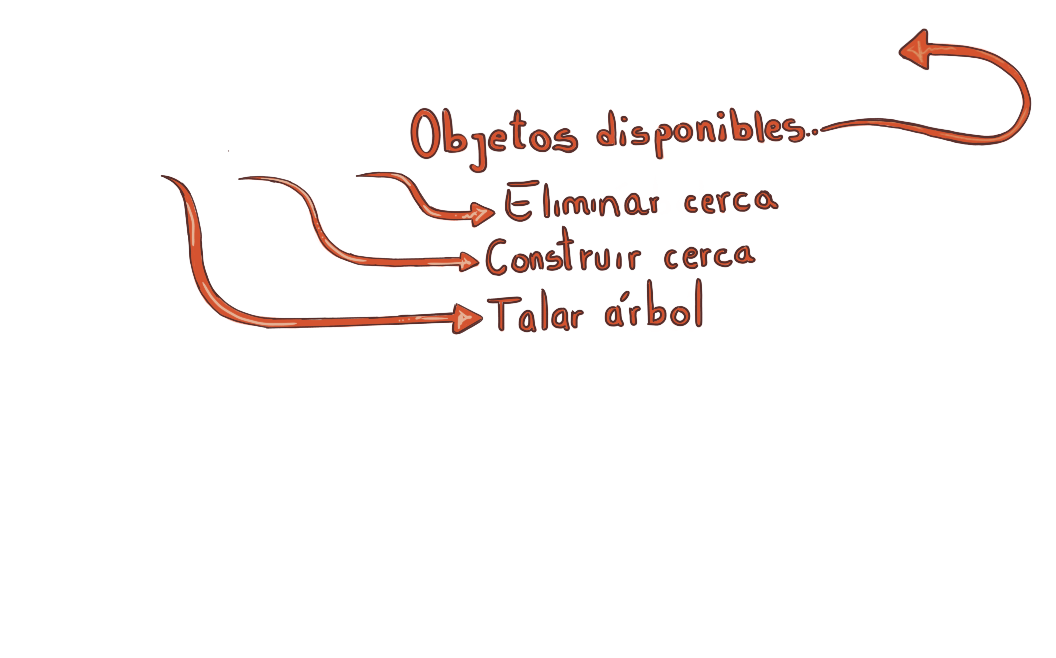 Objetos disponibles..
Eliminar cerca
Construir cerca
Talar árbol